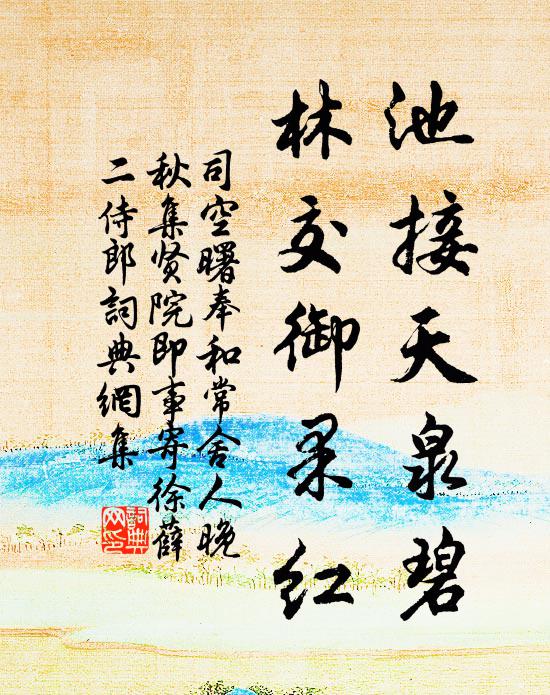 池接天泉碧
林交御果红
司空曙奉和常舍人晚
秋集贤院即事寄徐薛
二侍郎词典網集